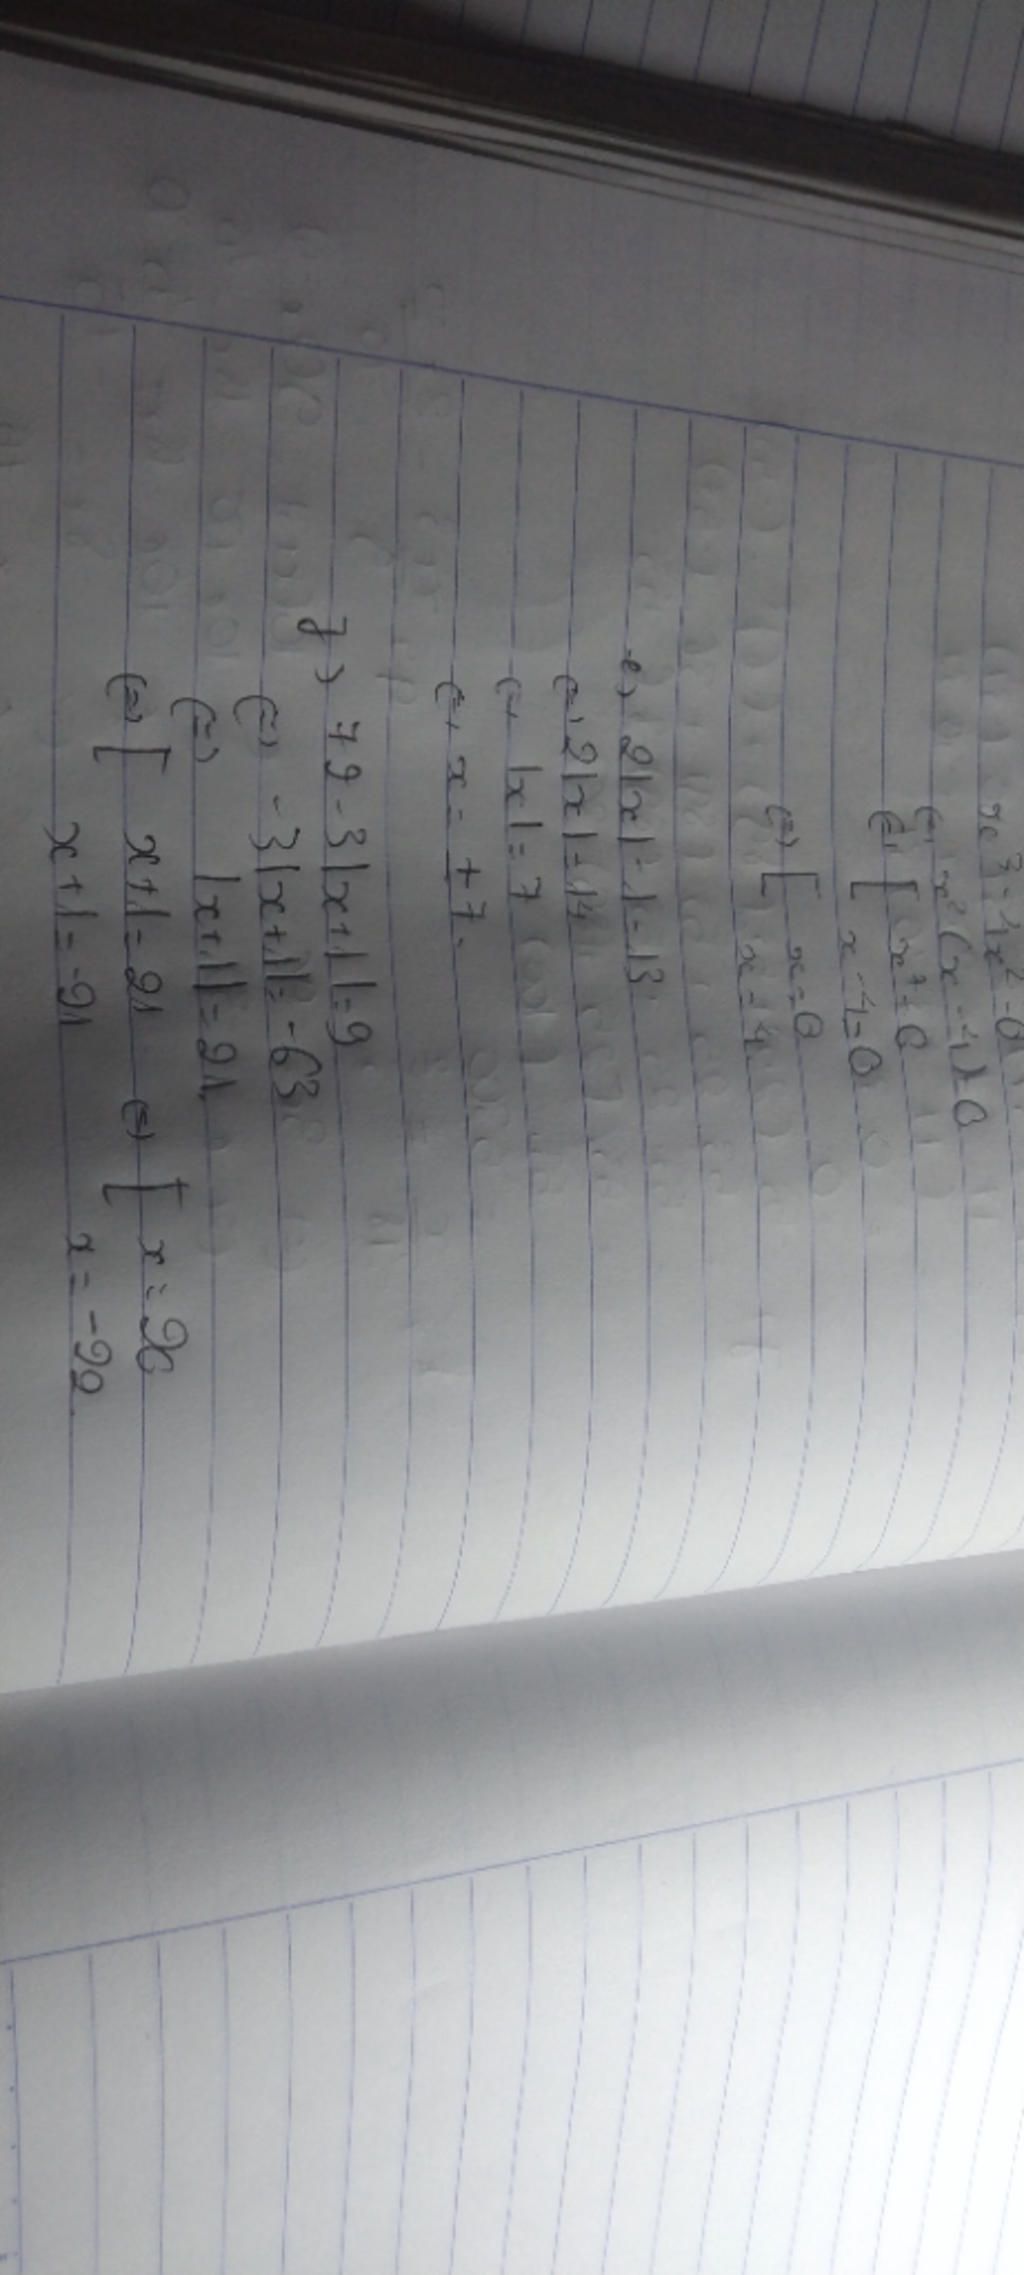 x³-4x²=0
(=) x²(x-4)=0
(=) [ x²=0
[ x-4=0
(=) [ x=0
[ x=4
e) 2|x|-1=13
(=) 2|x|=14
(=) |x|=7
(=) x=±7.
f) 72-3|x+1|=9
(=) -3|x+1|=-63
(=) |x+1|=21
(=) [ x+1=21 (=) [ x=20
x+1=-21 x=-22